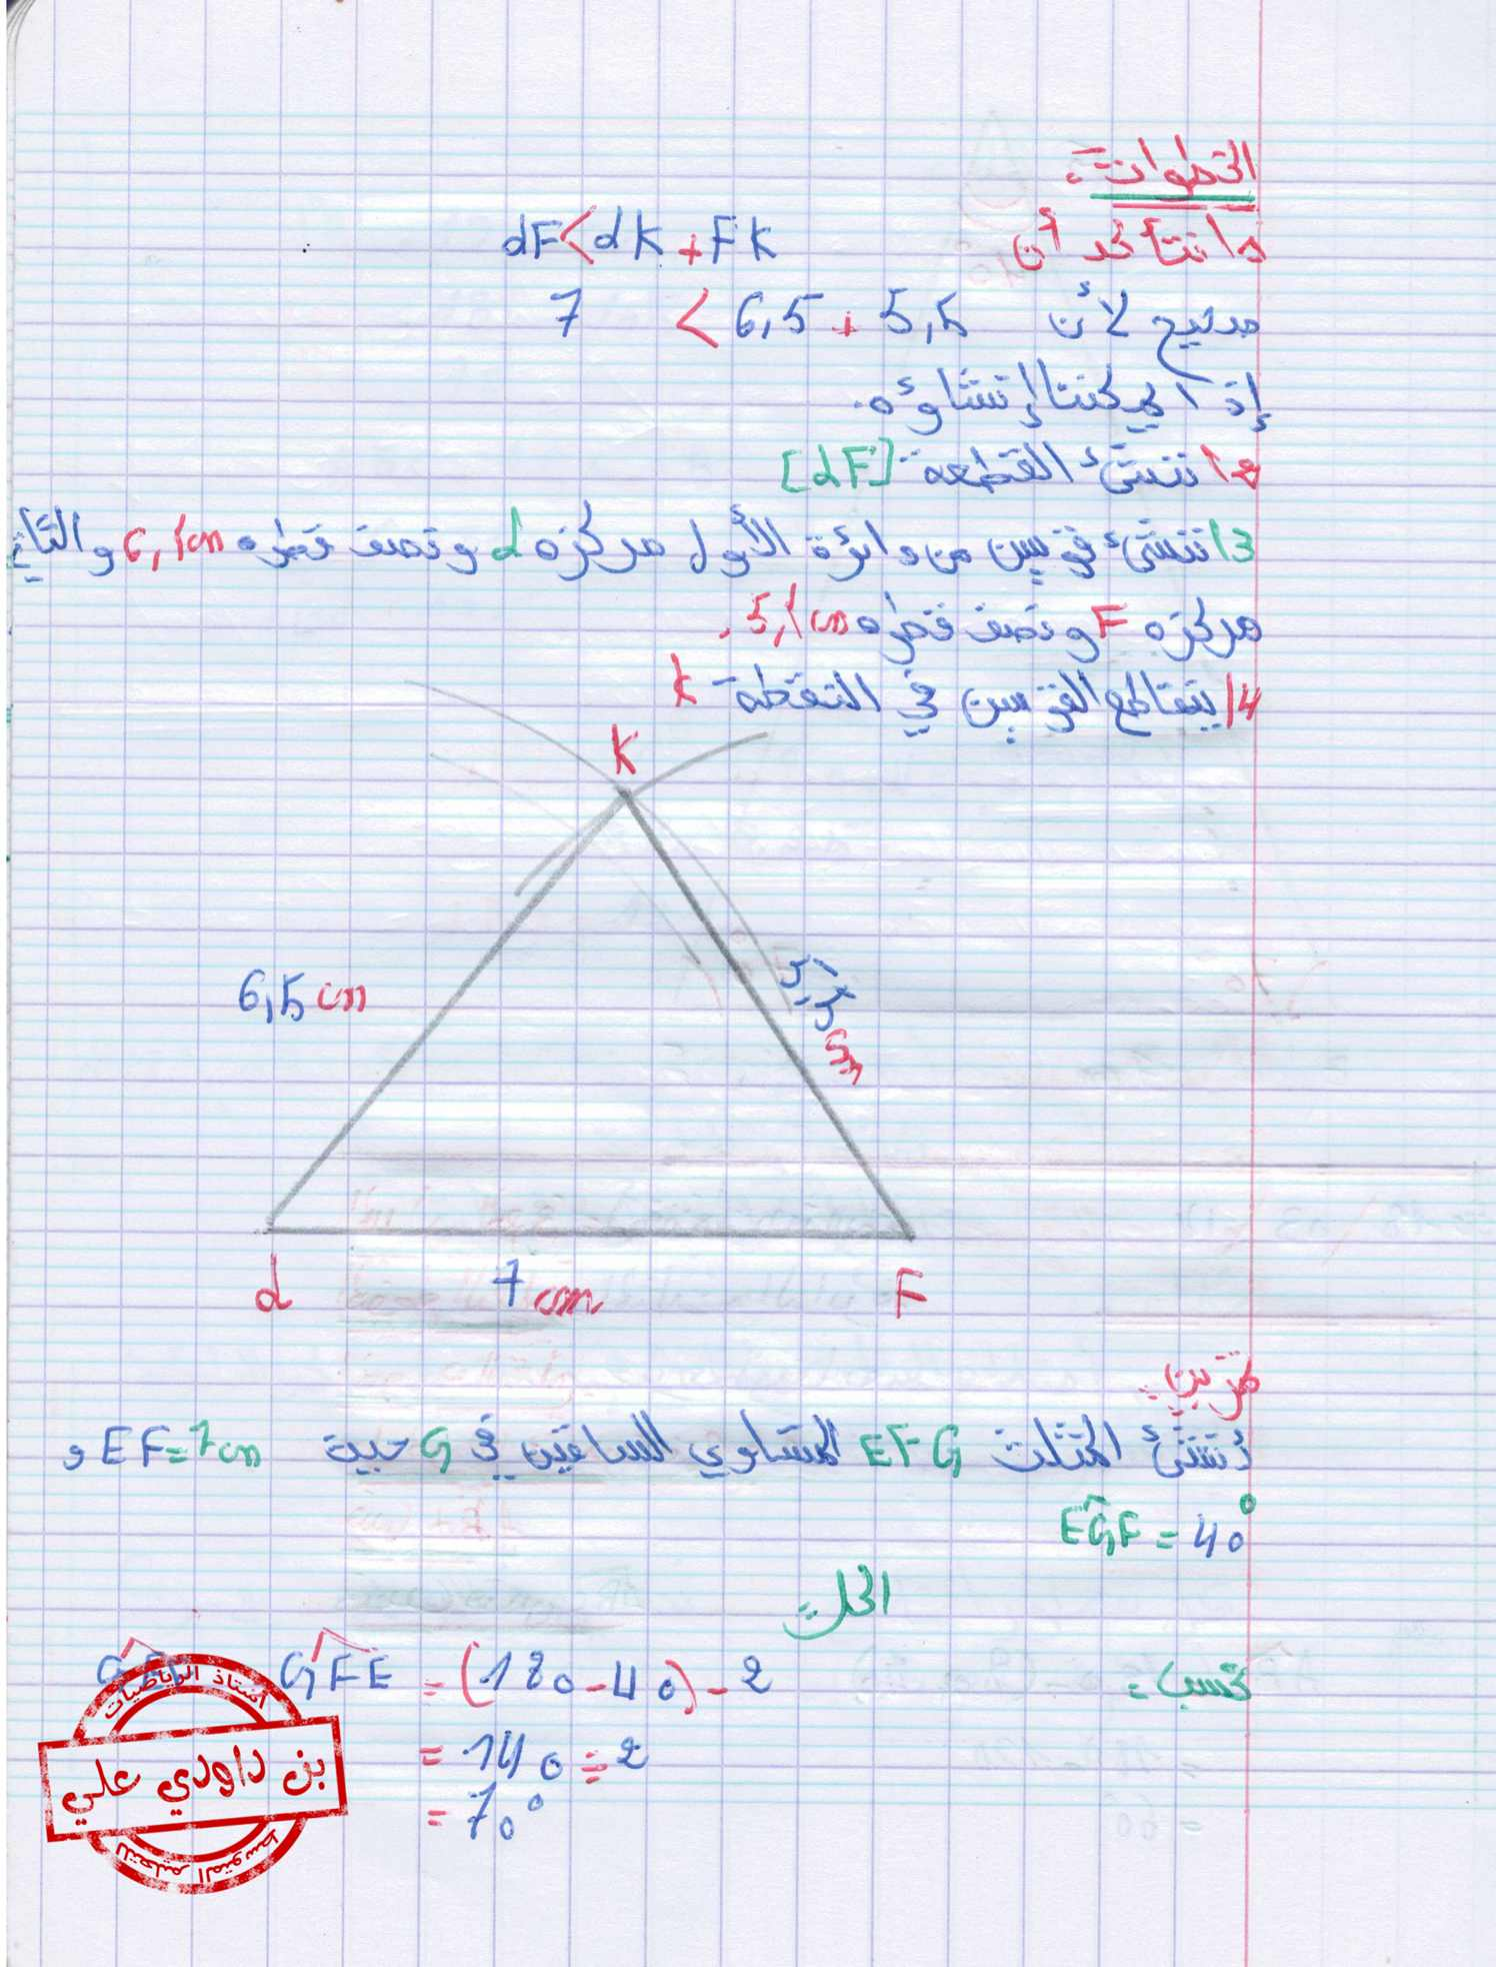 الخطوات :
1/ نتأكد أن dF < dK + FK
صحيح لأن 7 < 6,5 + 5,5
إذا يمكننا إنشاؤه.
2/ ننشئ القطعة [dF]
3/ ننشئ قوسين من دائرة الأول مركزه d ونصف قطره 6,5cm والثاني
مركزه F ونصف قطره 5,5cm .
4/ يتقاطع القوسين في النقطة K
K
6,5 cm
5,5 cm
d
7 cm
F
تمرين :
أنشئ المثلث EFG المتساوي الساقين في G حيث EF=7cm و
EGF = 40°
الحل :
نحسب : GFE = (180 - 40) - 2
= 140 ÷ 2
= 70°
أستاذ الرياضيات
بن داودي علي
للتعليم المتوسط